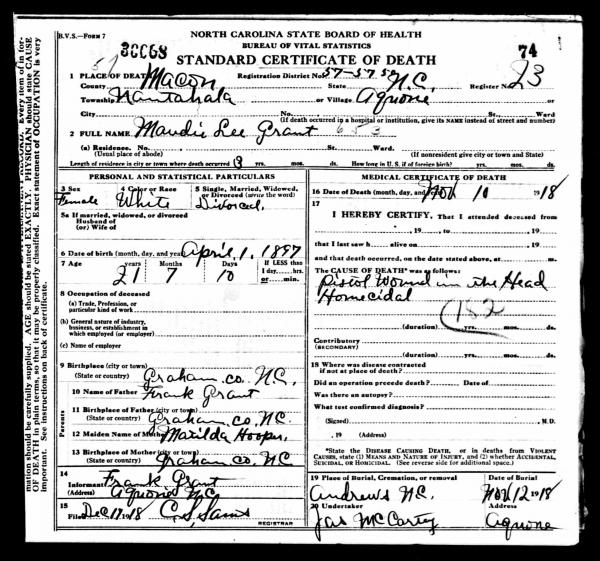 B.V.S.—FORM 7
NORTH CAROLINA STATE BOARD OF HEALTH
BUREAU OF VITAL STATISTICS
STANDARD CERTIFICATE OF DEATH
74
57
1 PLACE OF DEATH
County Macon Registration District No. 57-5752 State N.C. Register No. 23
Township Nantahala or Village Aquone or
City No. St. Ward
(If death occurred in a hospital or institution, give its NAME instead of street and number)
2 FULL NAME Maudie Lee Grant 653
(a) Residence. No. St. Ward
(Usual place of abode) (If nonresident give city or town and State)
Length of residence in city or town where death occurred yrs. mos. ds. How long in U. S. if of foreign birth? yrs. mos. ds.
PERSONAL AND STATISTICAL PARTICULARS
3 Sex 4 Color or Race 5 Single, Married, Widowed,
or Divorced (write the word)
Female White Divorced.
5a If married, widowed, or divorced
Husband of
(or) Wife of
6 Date of birth (month, day, and year) April, 1, 1897
7 Age years Months Days If LESS than
1 day......hrs.
or......min.
21 7 10
8 Occupation of deceased
(a) Trade, Profession, or
particular kind of work
(b) General nature of industry,
business, or establishment in
which employed (or employer)
(c) Name of employer
9 Birthplace (city or town)
(State or country) Graham co. N.C.
10 Name of Father Frank Grant
Parents
11 Birthplace of Father (city or town)
(State or country) Graham co, N.C.
12 Maiden Name of Mother Matilda Hooper,
13 Birthplace of Mother (city or town)
(State or country) Graham co. N.C
14
Informant Frank Grant
(Address) Aquone N.C.
15
Filed Dec 17 1918 C.S. Sams
REGISTRAR
MEDICAL CERTIFICATE OF DEATH
16 Date of Death (month, day, and year) Nov 10 1918
17
I HEREBY CERTIFY, That I attended deceased from
, 19 , to , 19
that I last saw h alive on , 19
and that death occurred, on the date stated above, at m.
The CAUSE OF DEATH* was as follows:
Pistol Wound in the Head
Homecidal
(182
(duration) yrs. mos. ds.
Contributory
(SECONDARY)
(duration) yrs. mos. ds.
18 Where was disease contracted
if not at place of death?
Did an operation precede death? Date of
Was there an autopsy?
What test confirmed diagnosis?
(Signed) , M.D.
, 19 (Address)
*State the DISEASE CAUSING DEATH, or in deaths from VIOLENT
CAUSES, state (1) MEANS AND NATURE OF INJURY, and (2) whether ACCIDENTAL,
SUICIDAL, or HOMICIDAL. (See reverse side for additional space.)
19 Place of Burial, Cremation, or removal Date of Burial
Andrews N.C. Nov 12 1918
20 Undertaker Address
Jas McCarty Aquone
mation should be carefully supplied. AGE should be stated EXACTLY. PHYSICIAN should state CAUSE
OF DEATH in plain terms, so that it may be properly classified. Exact statement of OCCUPATION is very
important. See instructions on back of certificate.